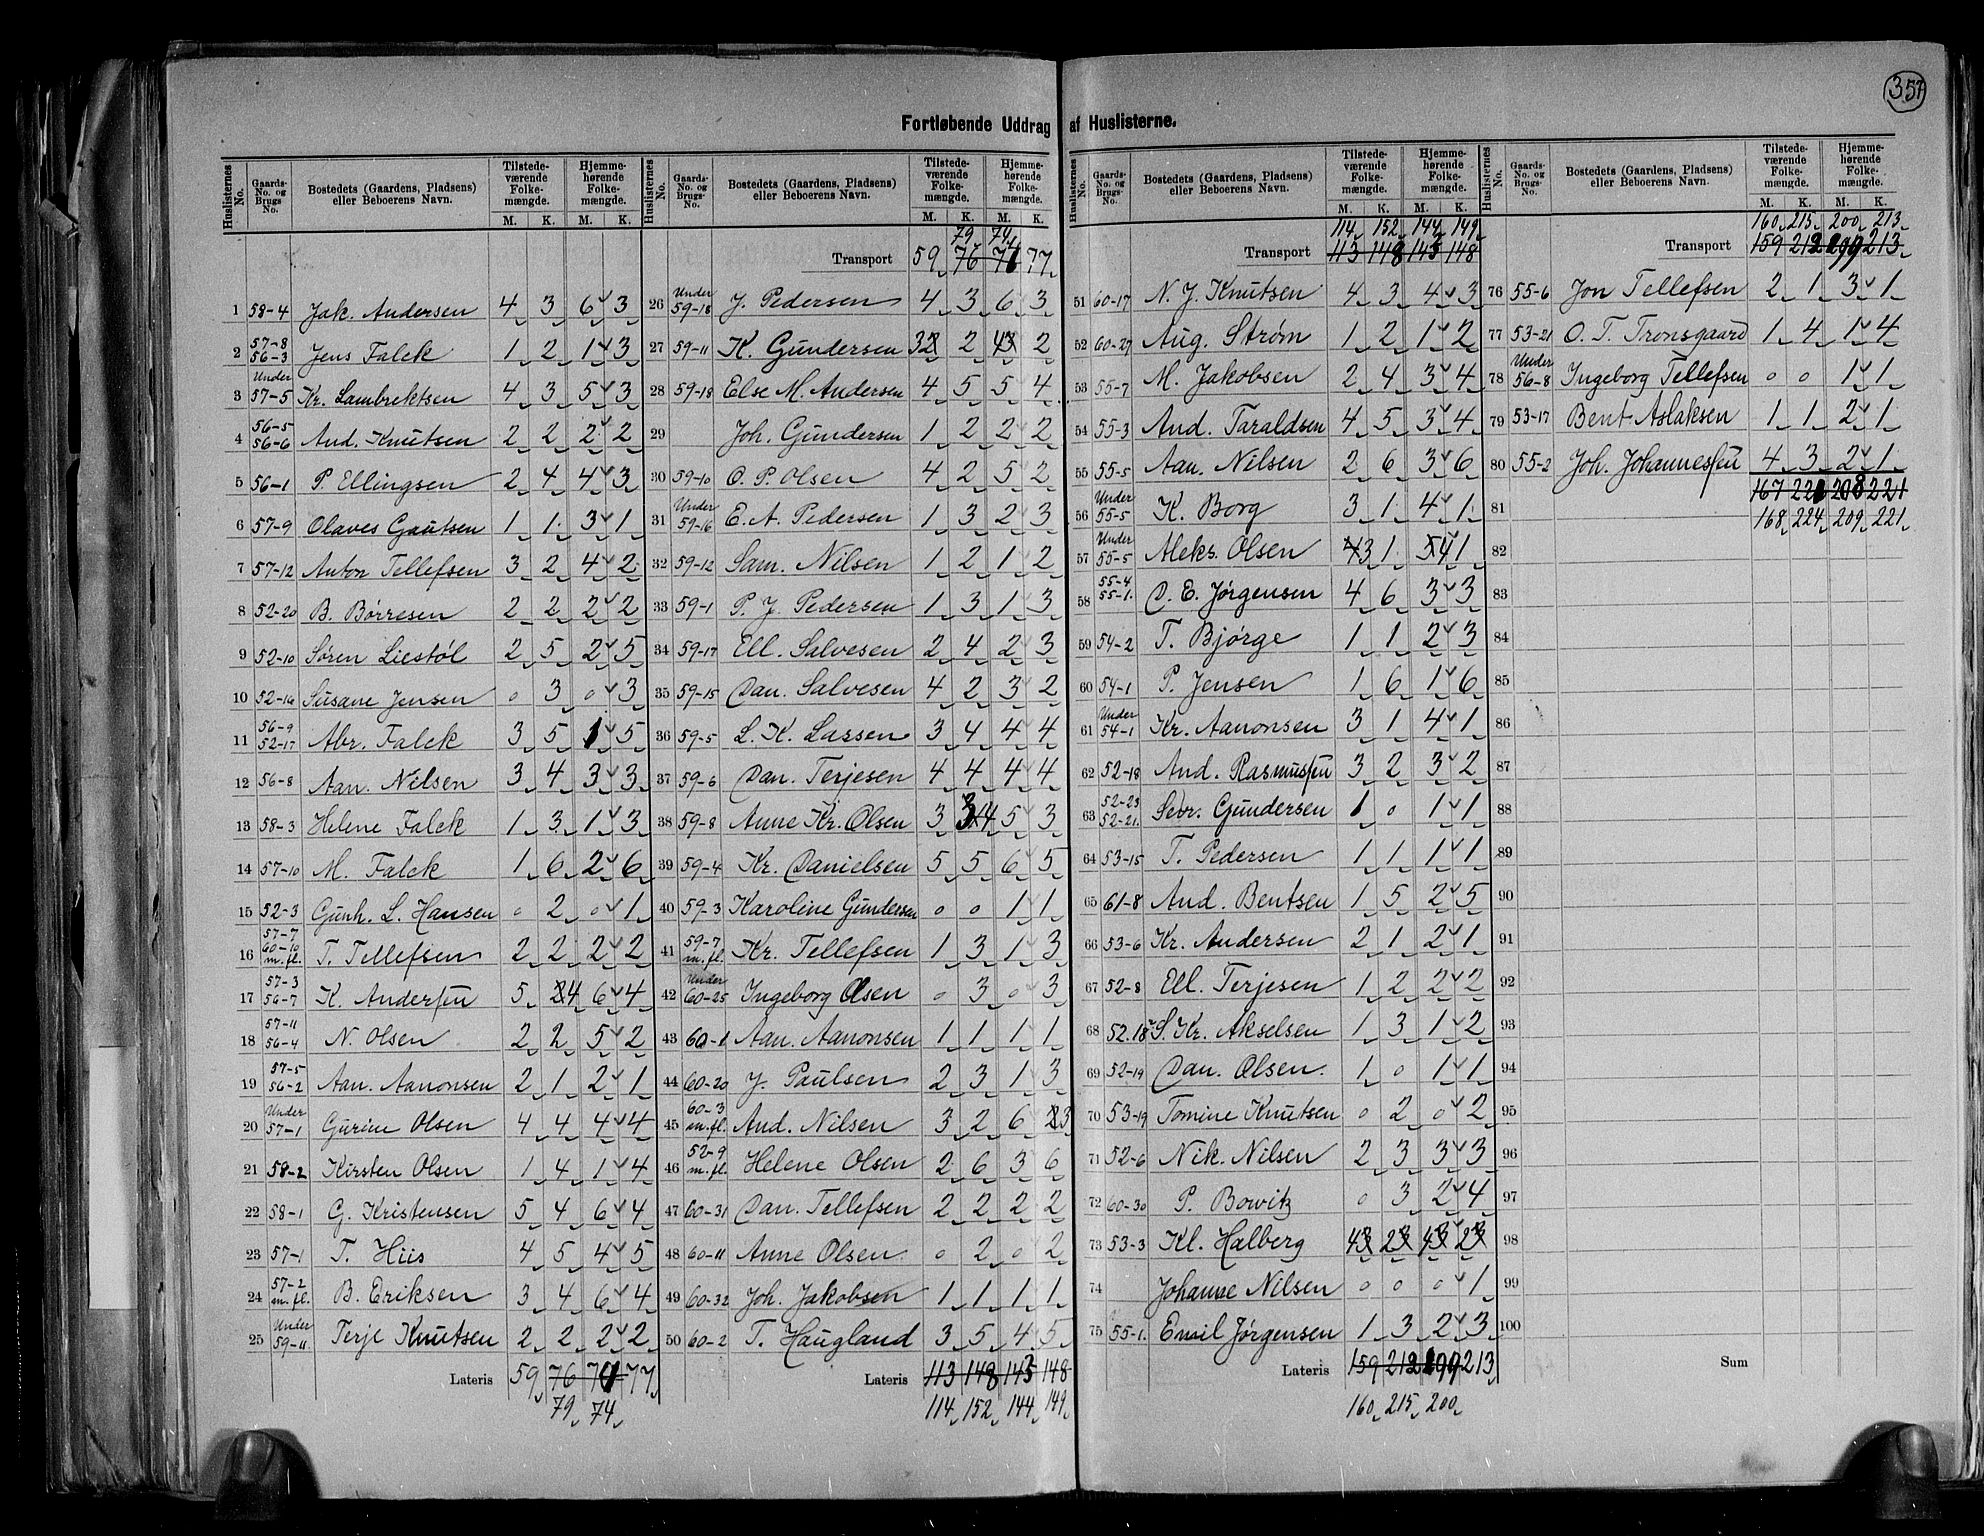 357
Fortløbende Uddrag af Huslisterne.
Huslisternes No. | Gaards-No. og Brugs-No. | Bostedets (Gaardens, Pladsens) eller Beboerens Navn. | Tilstedeværende Folkemængde. M. K. | Hjemmehørende Folkemængde. M. K.
1 58-4 Jak. Andersen 4 3 6 3
2 57-8 56-3 Jens Falck 1 2 1 3
3 Under 57-5 Kr. Lambrektsen 4 3 5 3
4 56-5 56-6 And. Knutsen 2 2 2 2
5 56-1 P. Ellingsen 2 4 4 3
6 57-9 Olaves Gautsen 1 1 3 1
7 57-12 Anton Tellefsen 3 2 4 2
8 52-20 B. Børresen 2 2 2 2
9 52-10 Søren Liestøl 2 5 2 5
10 52-16 Susane Jensen 0 3 0 3
11 56-9 52-17 Abr. Falck 3 5 1 5
12 56-8 Aan. Nilsen 3 4 3 3
13 58-3 Helene Falck 1 3 1 3
14 57-10 M. Falck 1 6 2 6
15 52-3 Gunh. L. Hansen 0 2 0 1
16 57-7 60-10 m.fl. T. Tellefsen 2 2 2 2
17 57-3 56-7 K. Andersen 5 4 6 4
18 57-11 56-4 N. Olsen 2 2 5 2
19 57-5 56-2 Aan. Aanonsen 2 1 2 1
20 Under 57-1 Gurine Olsen 4 4 4 4
21 58-2 Kirsten Olsen 1 4 1 4
22 58-1 G. Kristensen 5 4 6 4
23 57-1 T. Hiis 4 5 4 5
24 57-2 m.fl. B. Eriksen 3 4 6 4
25 Under 59-11 Terje Knutsen 2 2 2 2
Lateris 59 76 77
79 74
79 74
Transport 59 76 71 77
26 Under 59-18 J. Pedersen 4 3 6 3
27 59-11 K. Gundersen 3 2 2 4 3 2
28 59-18 Else M. Andersen 4 5 5 4
29 Joh. Gundersen 1 2 2 2
30 59-10 O. P. Olsen 4 2 5 2
31 Under 59-16 E. A. Pedersen 1 3 2 3
32 59-12 Sam. Nilsen 1 2 1 2
33 59-1 P. J. Pedersen 1 3 1 3
34 59-17 Ell. Salvesen 2 4 2 3
35 59-15 Dan. Salvesen 4 2 3 2
36 59-5 L. K. Lassen 3 4 4 4
37 59-6 Dan. Terjesen 4 4 4 4
38 59-8 Anne Kr. Olsen 3 3 4 5 3
39 59-4 Kr. Danielsen 5 5 6 5
40 59-3 Karoline Gundersen 0 0 1 1
41 59-7 m.fl. Kr. Tellefsen 1 3 1 3
42 Under 60-25 Ingeborg Olsen 0 3 0 3
43 60-1 Aan. Aanonsen 1 1 1 1
44 60-20 J. Paulsen 2 3 1 3
45 60-3 m.fl. And. Nilsen 3 2 6 2 3
46 52-9 m.fl. Helene Olsen 2 6 3 6
47 60-31 Dan. Tellefsen 2 2 2 2
48 60-11 Anne Olsen 0 2 0 2
49 60-32 Joh. Jakobsen 1 1 1 1
50 60-2 T. Haugland 3 5 4 5
Lateris 113 148 143 148
114 152 144 149
114 152 144 149
Transport 113 148 143 148
51 60-17 N. J. Knutsen 4 3 4 3
52 60-27 Aug. Strøm 1 2 1 2
53 55-7 M. Jakobsen 2 4 3 4
54 55-3 And. Taraldsen 4 5 3 4
55 55-5 Aan. Nilsen 2 6 3 6
56 Under 55-5 K. Borg 3 1 4 1
57 Under 55-5 Aleks. Olsen 4 3 1 5 4 1
58 55-4 55-1. O. E. Jørgensen 4 6 3 3
59 54-2 T. Bjørge 1 1 2 3
60 54-1 P. Jensen 1 6 1 6
61 Under 54-1 Kr. Aanonsen 3 1 4 1
62 52-18 And. Rasmussen 3 2 3 2
63 52-23 52-21. Sevr. Gundersen 1 0 1 1
64 53-15 T. Pedersen 1 1 1 1
65 61-8 And. Bentsen 1 5 2 5
66 53-6 Kr. Andersen 2 1 2 1
67 52-8 Ell. Terjesen 1 2 2 2
68 52.18 S. Kr. Akselsen 1 3 1 2
69 52-19 Dan. Olsen. 1 0 1 1
70 53-19 Tomine Knutsen 0 2 0 2
71 52-6 Nik. Nilsen 2 3 3 3
72 60-30 P. Bowitz 0 3 2 4
73 53-3 Kl. Halberg 4 3 2 3 4 3 2 3
74 Johanne Nilsen 0 0 0 1
75 55-1. Emil Jørgensen 1 3 2 3
Lateris 159 212 199 213
160 215 200
160 215 200 213
Transport 159 212 199 213
76 55-6 Jon Tellefsen 2 1 3 1
77 53-21 O. T. Tronsgaard 1 4 1 4
78 Under 56-8 Ingeborg Tellefsen 0 0 1 1
79 53-17 Bent Aslaksen 1 1 2 1
80 55-2 Joh. Johannessen 4 3 2 1
167 221 208 221
81 168 224 209 221
82
83
84
85
86
87
88
89
90
91
92
93
94
95
96
97
98
99
100
Sum